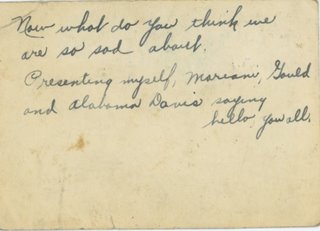 Now what do you think we
are so sad about.
Presenting myself, Mariani, Gould
and Alabama Davis saying
hello, you all.